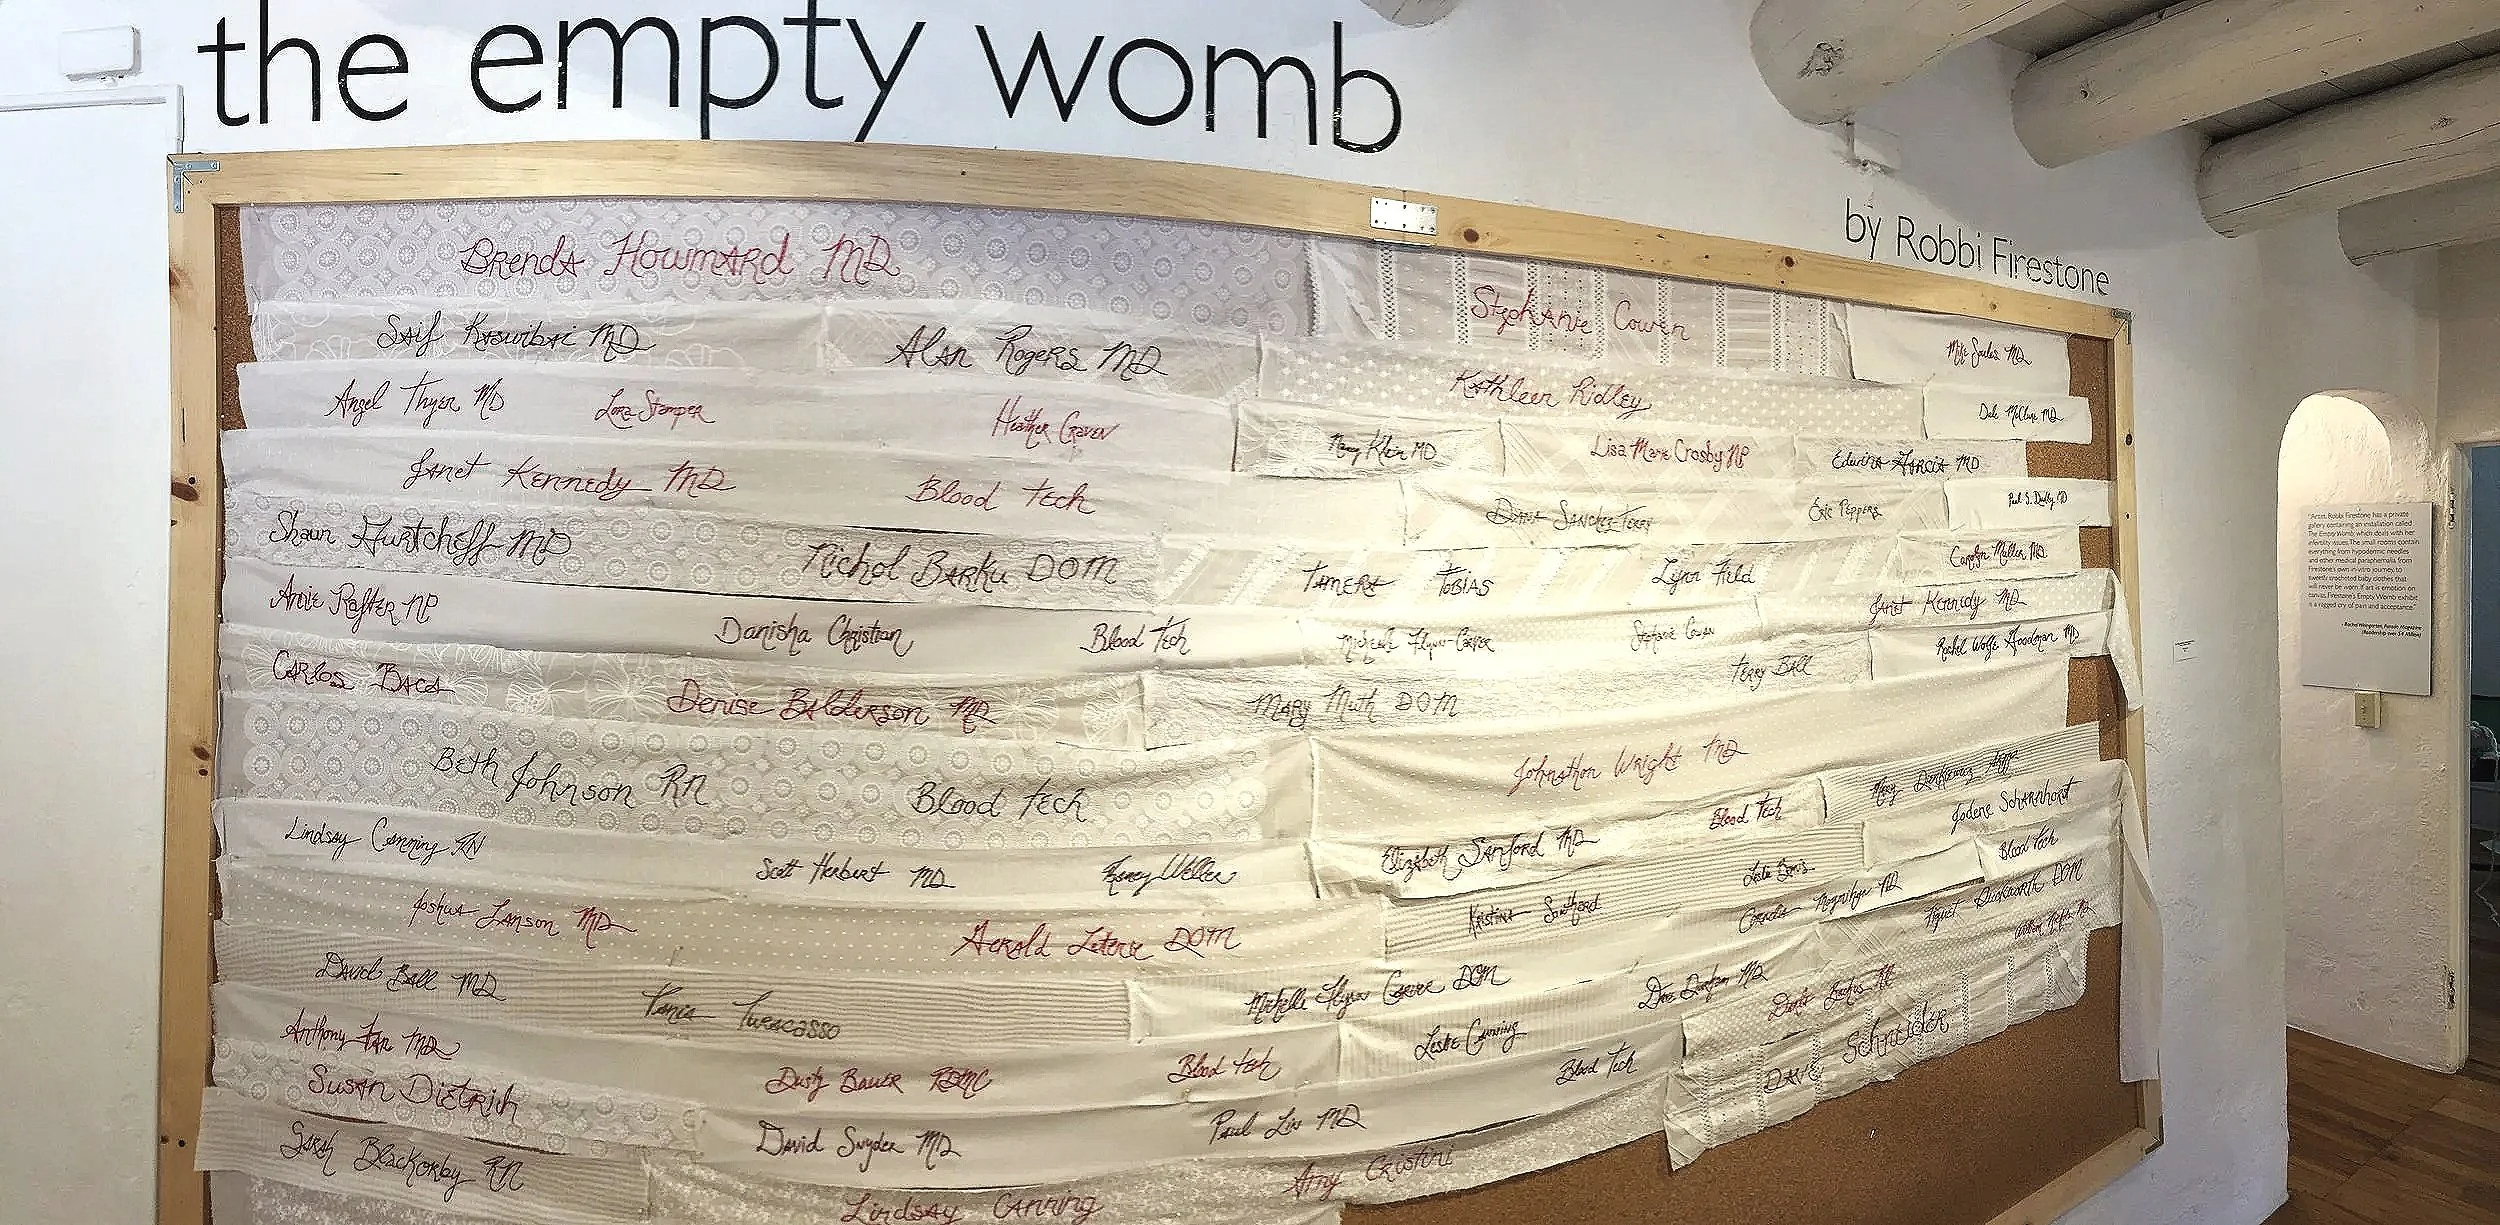 the empty womb
by Robbi Firestone
Brenda Howmard MD
Stephanie Cowen
Saif Kaswibai MD
Alan Rogers MD
Mike Soules MD
Angel Thyer MD
Lora Stamper
Heather Craven
Kathleen Ridley
Dale McClure MD
Nancy Klein MD
Lisa Marie Crosby NP
Edwina Garcia MD
Janet Kennedy MD
Blood tech
Diana Sanchez-Terry
Eric Peppers
Paul S. Dudley MD
Shaun Hurtcheff MD
Nichol Barku DOM
Tamera Tobias
Lynn Field
Carolyn Muller MD
Annie Rafter NP
Danisha Christian
Blood tech
Michelle Flynn-Carver
Stephanie Cowen
Janet Kennedy MD
Rachel Wolfe Goodman MD
Carlos Baca
Denise Balderson MD
Mary Muth DOM
Terry Ball
Beth Johnson RN
Blood tech
Johnathon Wright MD
Lindsay Canning RN
Scott Herbert MD
Weller
Elizabeth Sanford MD
Blood tech
Jodene Scharnhorst
Blood tech
Joshua Lanson MD
Aerold DOM
Kristina
Leslie
MD
Duckworth DOM
David Ball MD
Tania Turacasso
Michelle Flynn Carver DOM
Doe Dunham MD
Anthony Tan MD
Dusty Bauer
Blood tech
Leslie Canning
Blood tech
Dave Schneider
Susan Dietrich
David Snyder MD
Paul Lin MD
Sarah Blackorby RN
Lindsay Canning
Amy Cristini
"Artist Robbi Firestone has a private
gallery containing an installation called
The Empty Womb, which deals with her
infertility issues. The small rooms contain
everything from hypodermic needles
and other medical paraphernalia from
Firestone's own in-vitro journey, to
sweetly crocheted baby clothes that
will never be worn. If art is emotion on
canvas, Firestone's Empty Womb exhibit
is a ragged cry of pain and acceptance."
- Rachel Weingarten, Parade Magazine